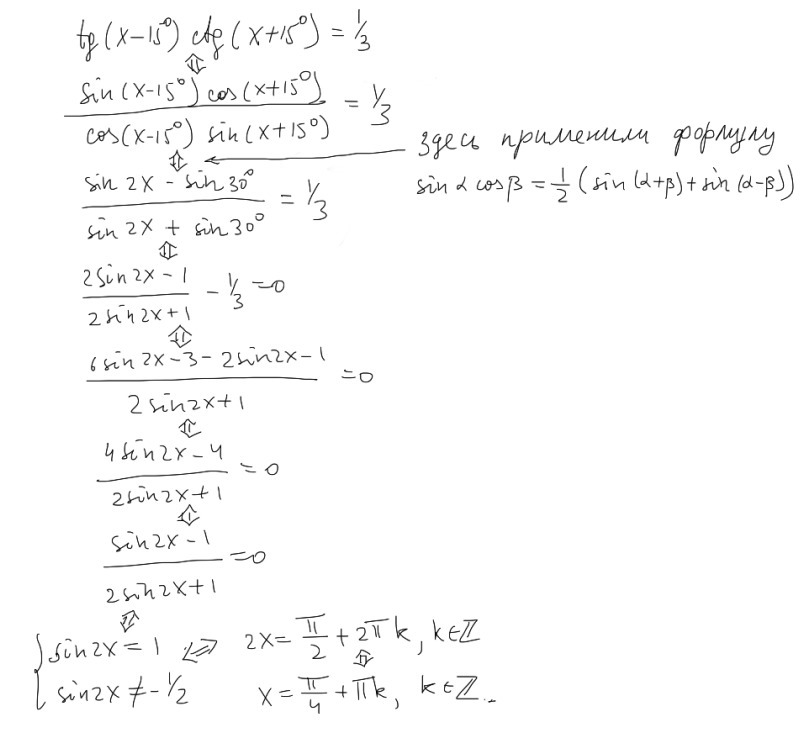 tg(x-15⁰) ctg(x+15⁰) = 1/3
⇕
sin(x-15⁰) cos(x+15⁰) / cos(x-15⁰) sin(x+15⁰) = 1/3
⇕ ← здесь применили формулу
sin α cos β = 1/2 (sin(α+β) + sin(α-β))
sin 2x - sin 30⁰ / sin 2x + sin 30⁰ = 1/3
⇕
2 sin 2x - 1 / 2 sin 2x + 1 - 1/3 = 0
⇕
6 sin 2x - 3 - 2 sin 2x - 1 / 2 sin 2x + 1 = 0
⇕
4 sin 2x - 4 / 2 sin 2x + 1 = 0
⇕
sin 2x - 1 / 2 sin 2x + 1 = 0
⇕
{ sin 2x = 1 ⇔ 2x = π/2 + 2πk, k ∈ ℤ
⇕
{ sin 2x ≠ -1/2 x = π/4 + πk, k ∈ ℤ.